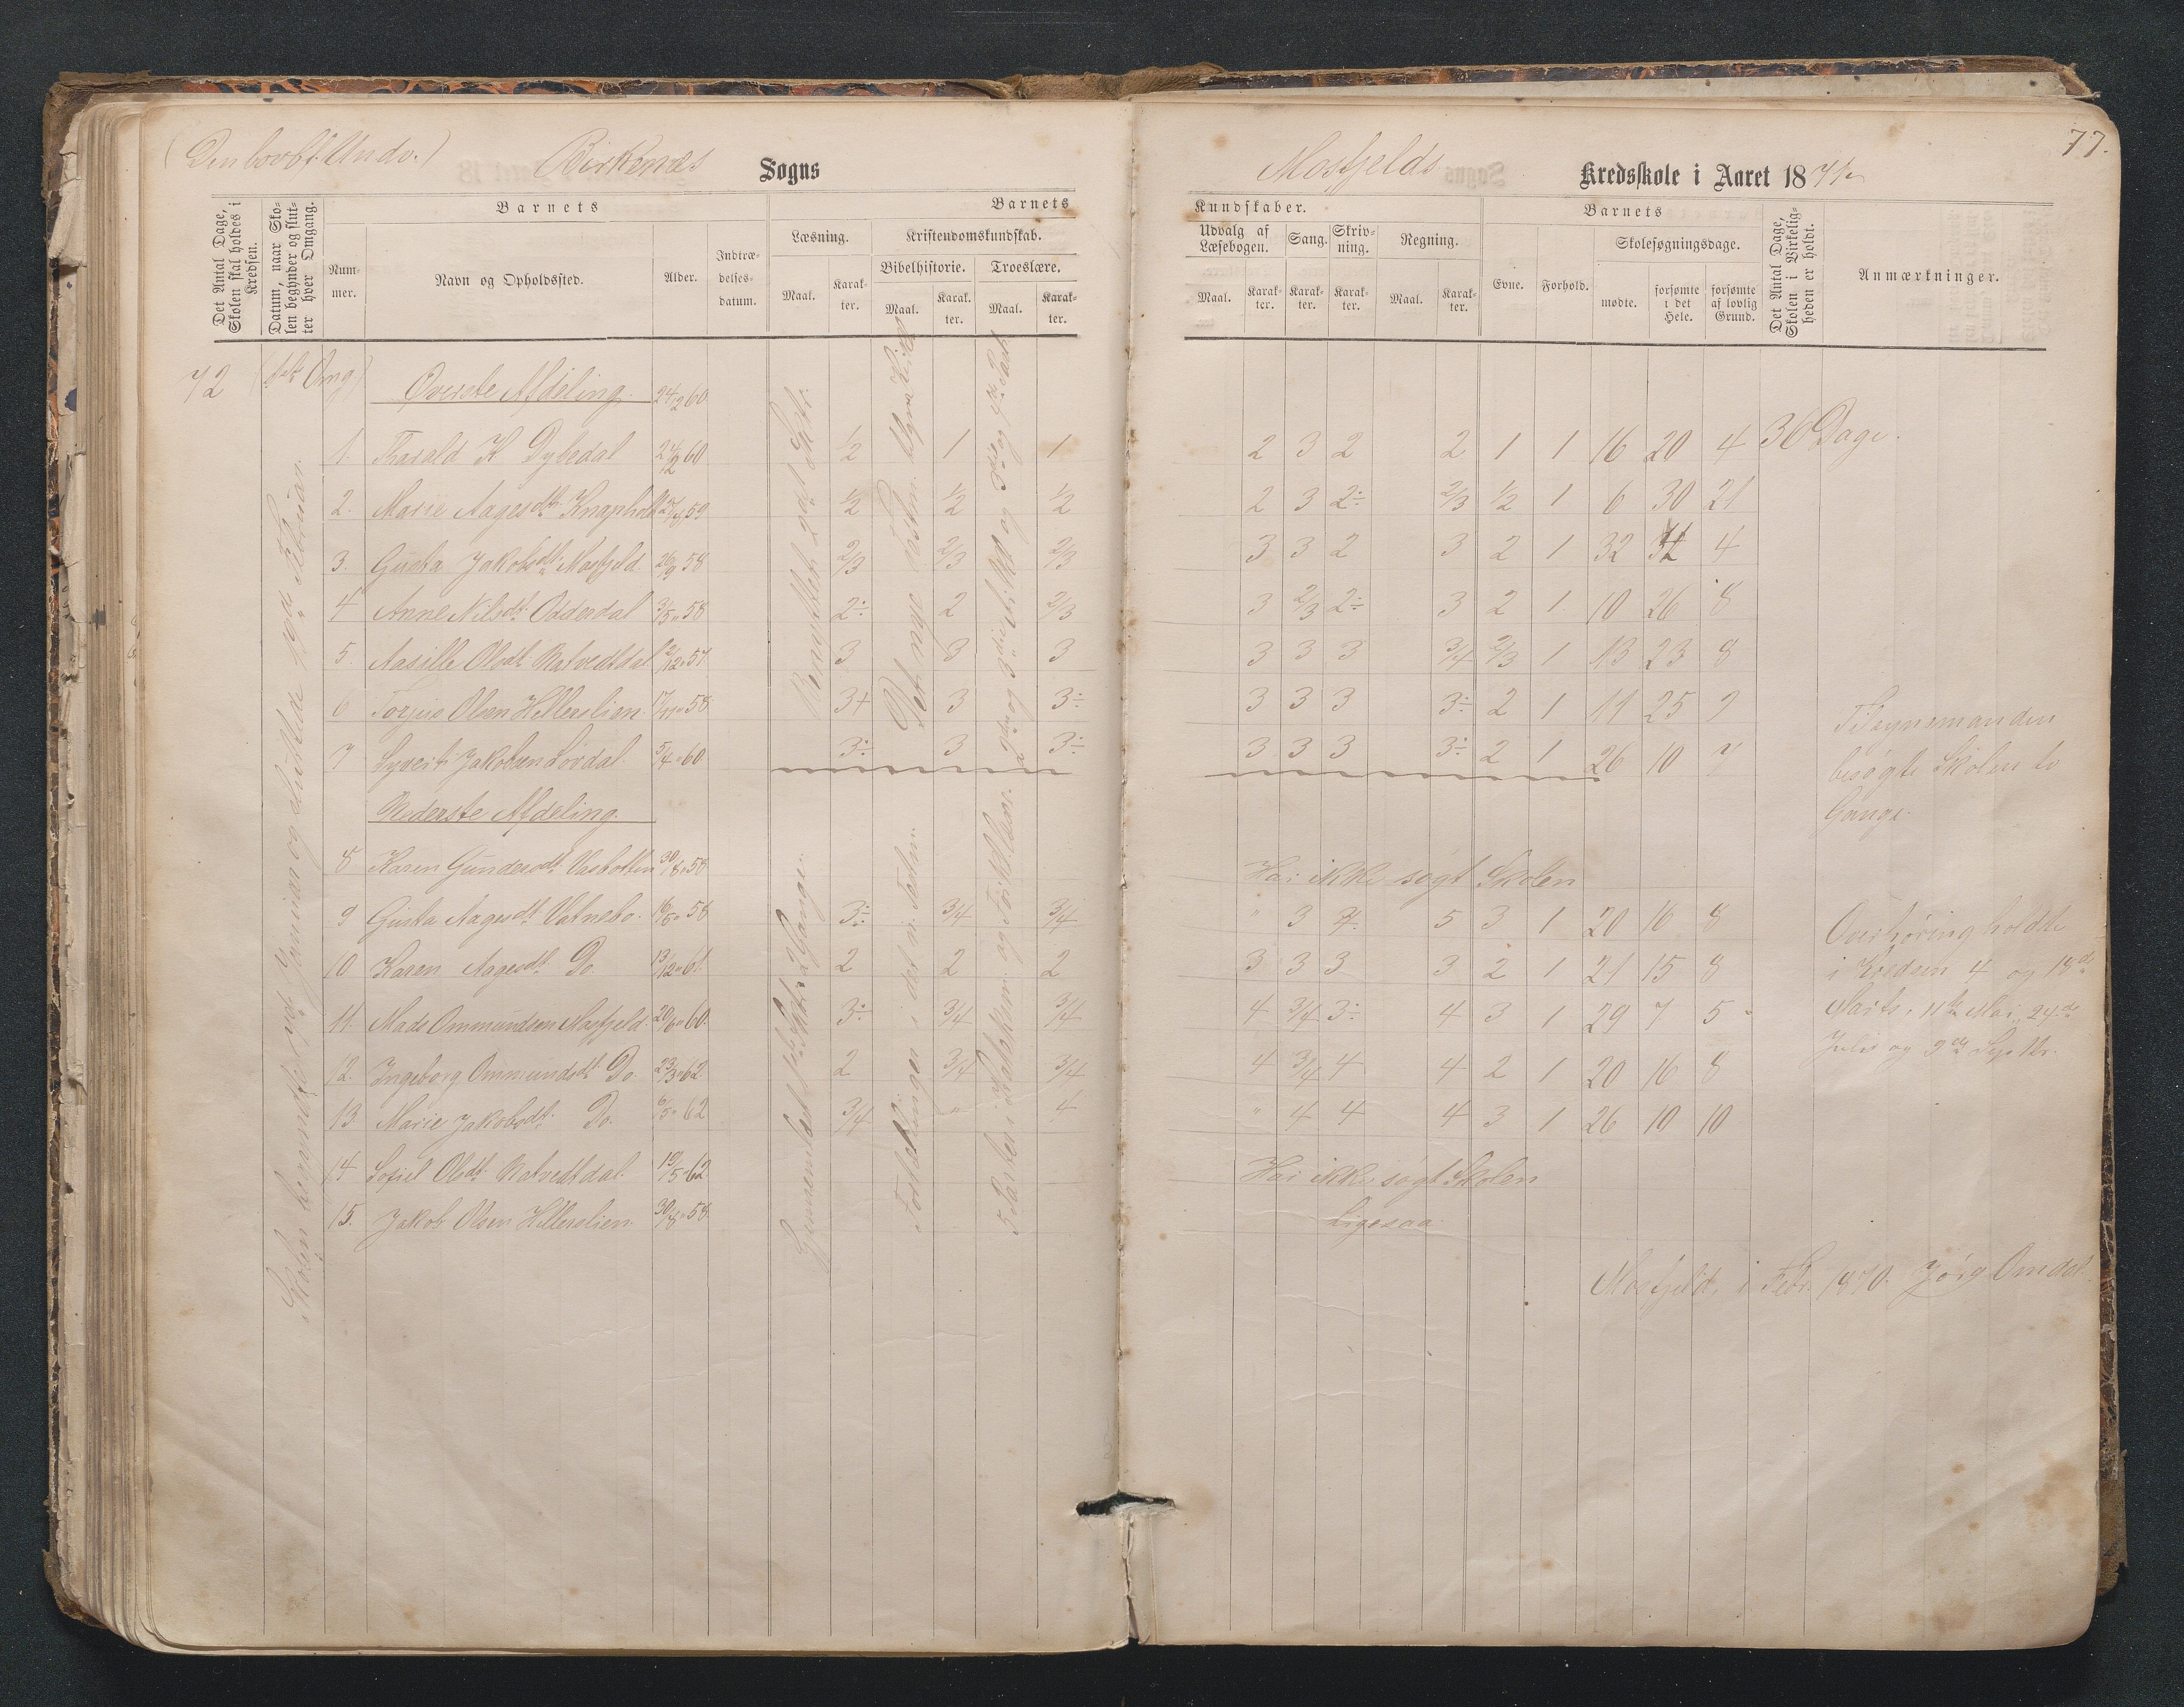 (Den lovbf. Undv.) Birkenæs Sogns
Mosfjelds Kredsskole i Aaret 187
77.
Det Antal Dage, Skolen skal holdes i Kredsen.
Datum, naar Skolen begynder og slutter hver Omgang.
Barnets
Nummer.
Navn og Opholdssted.
Alder.
Indtrædelsesdatum.
Barnets
Læsning.
Maal.
Karakter.
Kristendomskundskab.
Bibelhistorie.
Maal.
Karakter.
Troeslære.
Maal.
Karakter.
Kundskaber.
Udvalg af Læsebogen.
Maal.
Karakter.
Sang.
Karakter.
Skrivning.
Karakter.
Regning.
Maal.
Karakter.
Barnets
Evne.
Forhold.
Skolesøgningsdage.
mødte.
forsømte i det Hele.
forsømte af lovlig Grund.
Det Antal Dage, Skolen i Virkeligheden er holdt.
Anmærkninger.
72 Omg)
Øverste Afdeling. 24/12 60
1. Tharald K Dybedal 24/12 60 1/2 1 1 2 3 2 2 1 1 16 20 4 36 Dage.
2. Marie Aagesdtr Knapholt 59 1/2 1/2 1/2 2 3 2÷ 2/3 1/2 1 6 30 21
3. Gusta Jakobsdt. Mosfjeld 26/9 58 2/3 2/3 2/3 3 3 2 3 2 1 32 4
4 Anne Nilsdt. Odderdal 3/5 58 2÷ 2 2/3 3 2/3 2÷ 3 2 1 10 26 8
5. Aasille Olsdt. Natvedtdal 2/12 57 3 3 3 3 3 3 3/4 2/3 1 13 23 8
6 Torjus Olsen Hillerslien. 17/11 58 3+ 3 3÷ 3 3 3 3÷ 2 1 11 25 9
7 Syvert Jakobsen Lordal. 5/4 60 3÷ 3 3÷ 3 3 3 3÷ 2 1 26 10 7
Nederste Afdeling.
8 Karen Gundersdt. Vasbotten 30/8 58 Har ikke søgt Skolen
9 Gusta Aagesdt. Vatnebo. 16/6 58 3÷ 3/4 3/4 " 3 5 3 1 20 16 8
10 Karen Aagesdt. Do. 13/12 61. 2 2 2 3 3 3 3 2 1 21 15 8
11. Mads Ommundsen Mosfjeld. 20/6 60. 3÷ 3/4 3/4 4 3/4 3÷ 4 3 1 29 7 5
12. Ingeborg Ommundsdt. Do. 23/3 62 2 3/4 3/4 4 3/4 4 4 2 1 20 16 8
13. Marie Jakobsdt. Do. 6/5 62 3/4 " 4 " 4 4 4 3 1 26 10 10
14 Sofiel Olsdt. Natvedtdal. 19/5 62 Har ikke søgt Skolen
15. Jakob Olsen Hillerslien. 30/8 58. Ligesaa
Skolen begyndte Januar og sluttede Februar.
Gjennemlæst 2 Gange.
Det nye Testm.
Fortællinger i det n. Testm.
5 Parter i Katekism. og Forklar.
Tilsynsmanden
besøgte Skolen to
Gange.
Overhøring holdte
i Kredsen 4 og 18de
Marts, 11te Mai, 24de
Juli og 9de Septbr.
Mosfjeld, i Febr. 1870. Jørg Omdal.